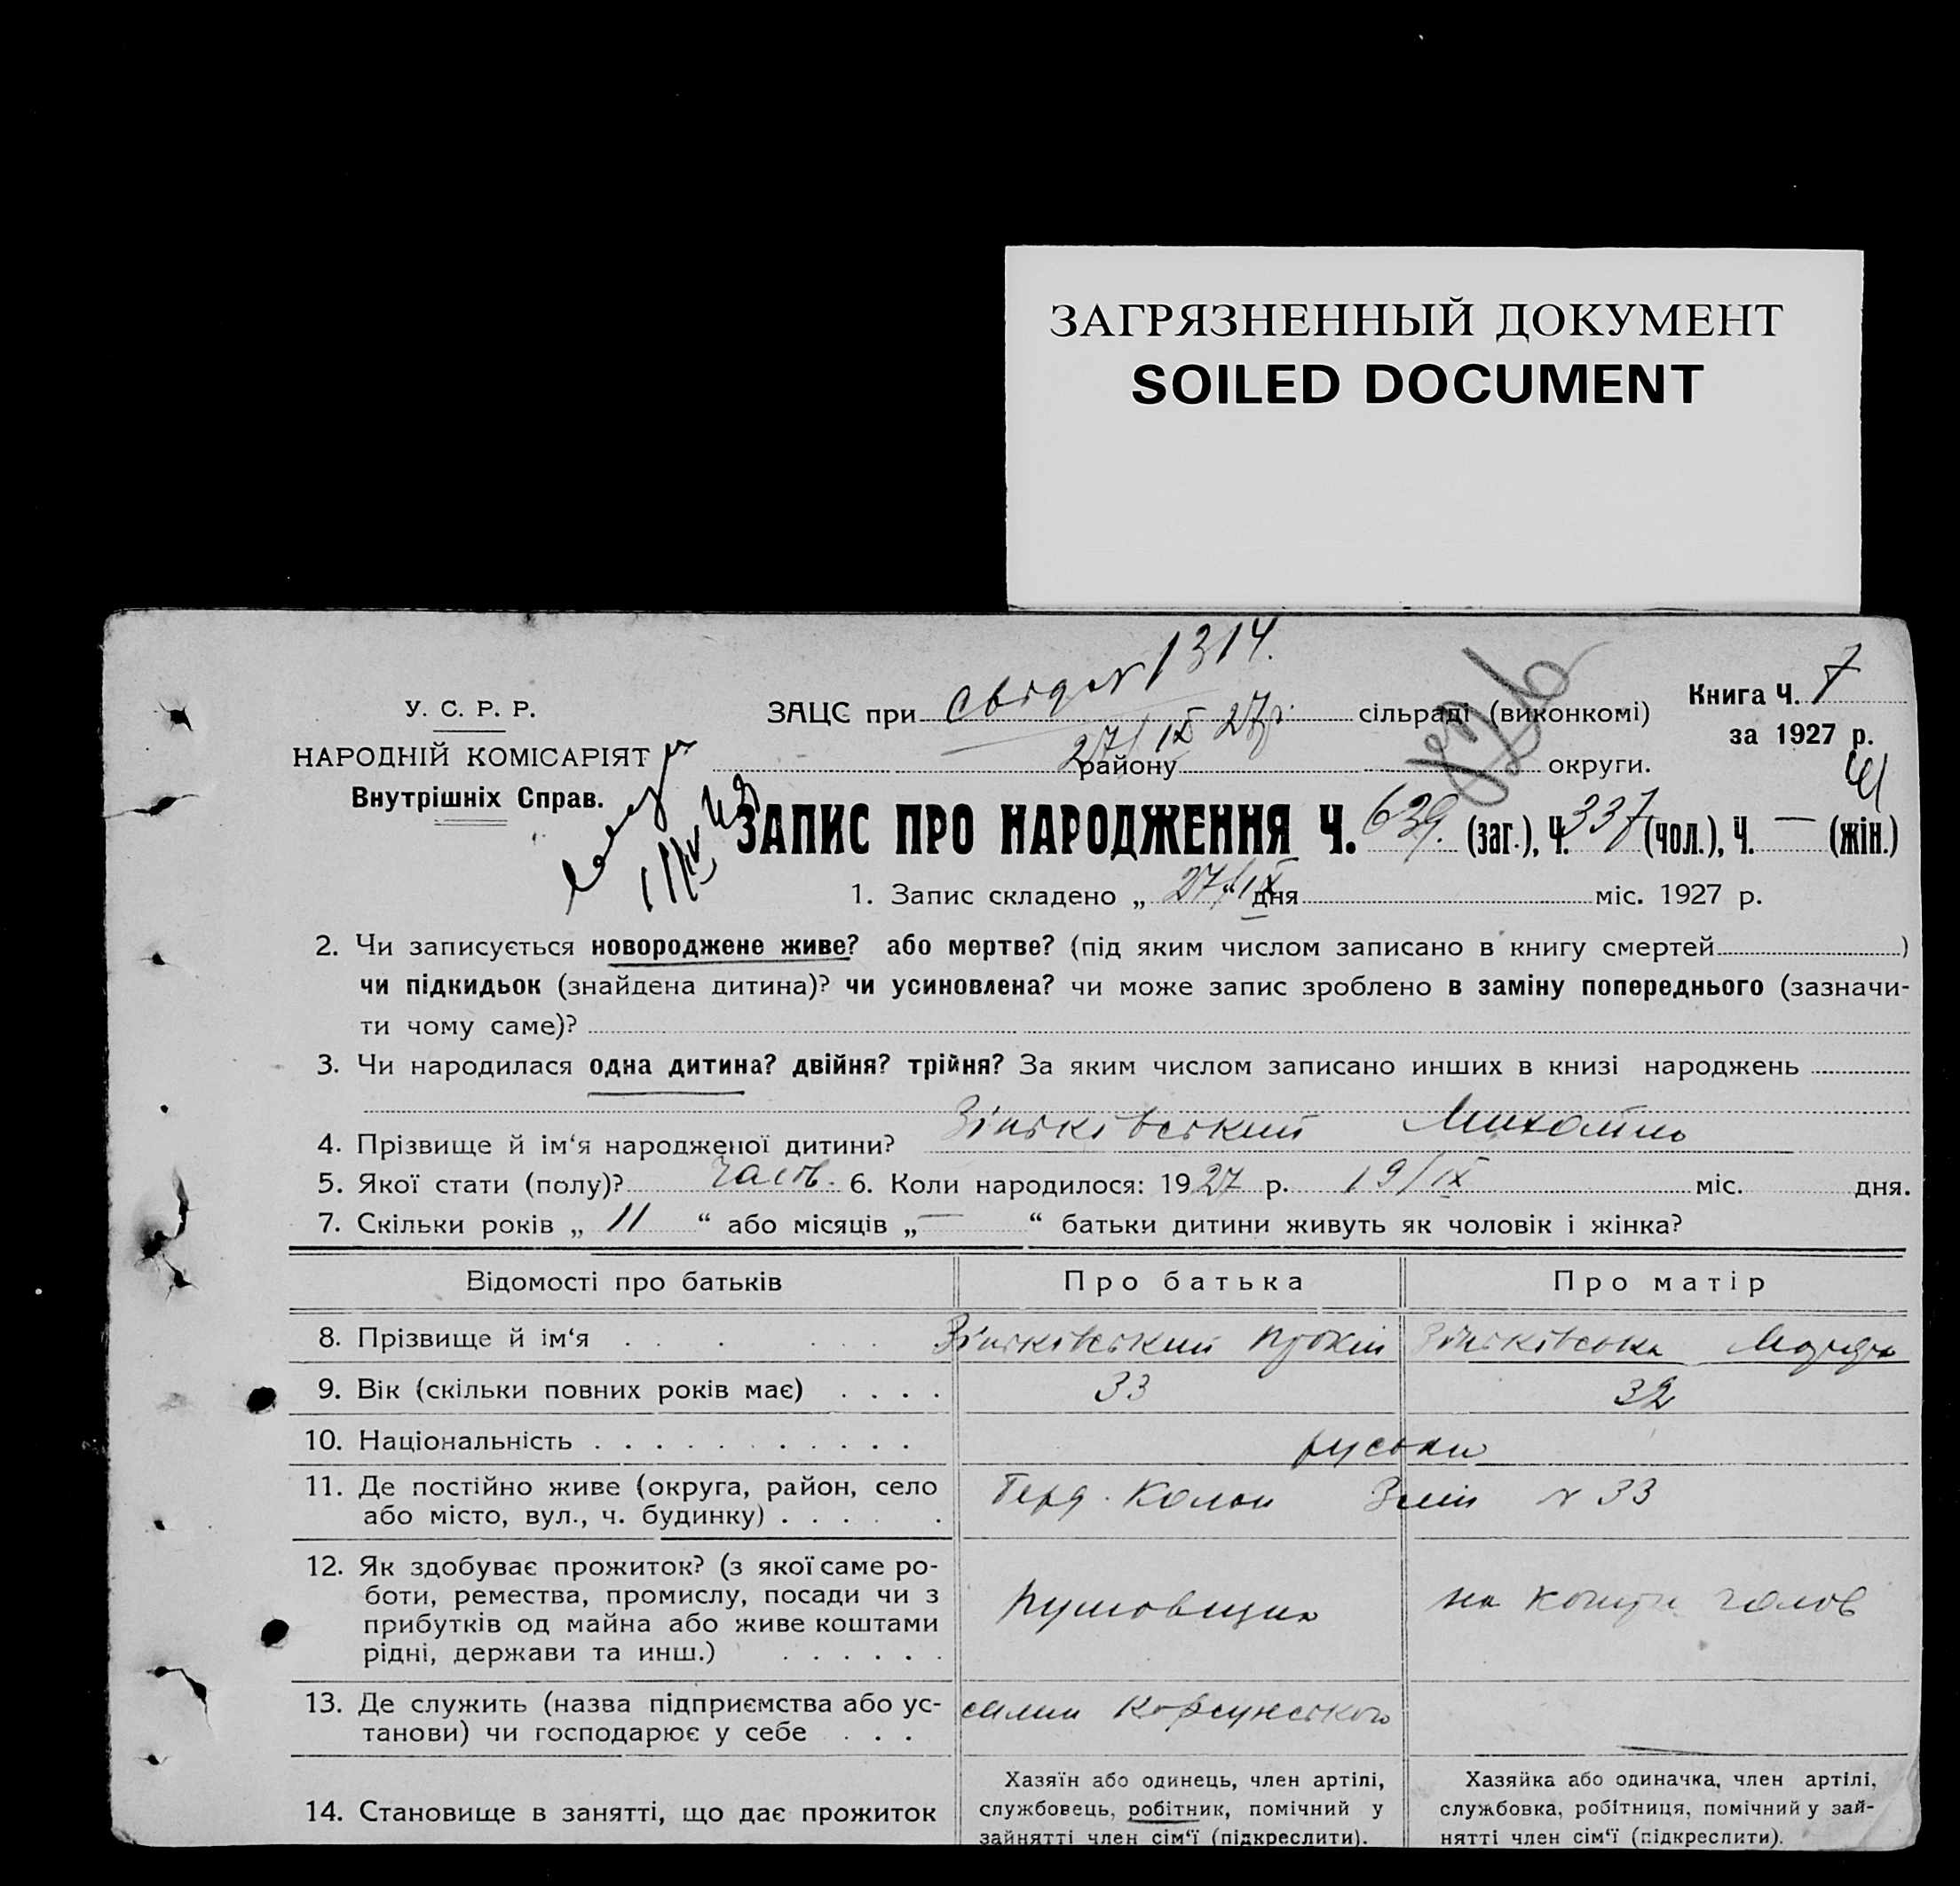 ЗАГРЯЗНЕННЫЙ ДОКУМЕНТ
SOILED DOCUMENT
У. С. Р. Р.
НАРОДНІЙ КОМІСАРІЯТ
Внутрішніх Справ.
1314.
ЗАЦС при сільраді (виконкомі)
27/IX 27р.
району округи.
Книга Ч. 7
за 1927 р.
ЗАПИС ПРО НАРОДЖЕННЯ Ч. 639. (заг.), Ч. 337 (чол.), Ч. — (жін.)
1. Запис складено „ 27/IX “ дня міс. 1927 р.
2. Чи записується новороджене живе? або мертве? (під яким числом записано в книгу смертей )
чи підкидьок (знайдена дитина)? чи усиновлена? чи може запис зроблено в заміну попереднього (зазначи-
ти чому саме)?
3. Чи народилася одна дитина? двійня? трійня? За яким числом записано инших в книзі народжень
4. Прізвище й ім‘я народженої дитини? Зіньківський Михайло
5. Якої стати (полу)? 6. Коли народилося: 1927 р. 19/IX міс. дня.
7. Скільки років „ 11 “ або місяців „ — “ батьки дитини живуть як чоловік і жінка?
Відомості про батьків Про батька Про матір
8. Прізвище й ім‘я Зіньківський Зіньківська
9. Вік (скільки повних років має) 33 32
10. Національність руськи
11. Де постійно живе (округа, район, село
або місто, вул., ч. будинку) 33
12. Як здобуває прожиток? (з якої саме ро-
боти, ремества, промислу, посади чи з
прибутків од майна або живе коштами
рідні, держави та инш.)
на кошти голов
13. Де служить (назва підприємства або ус-
танови) чи господарює у себе Корсунського
14. Становище в занятті, що дає прожиток
Хазяїн або одинець, член артілі,
службовець, робітник, помічний у
зайнятті член сім‘ї (підкреслити).
Хазяйка або одиначка, член артілі,
службовка, робітниця, помічний у зай-
нятті член сім‘ї (підкреслити).